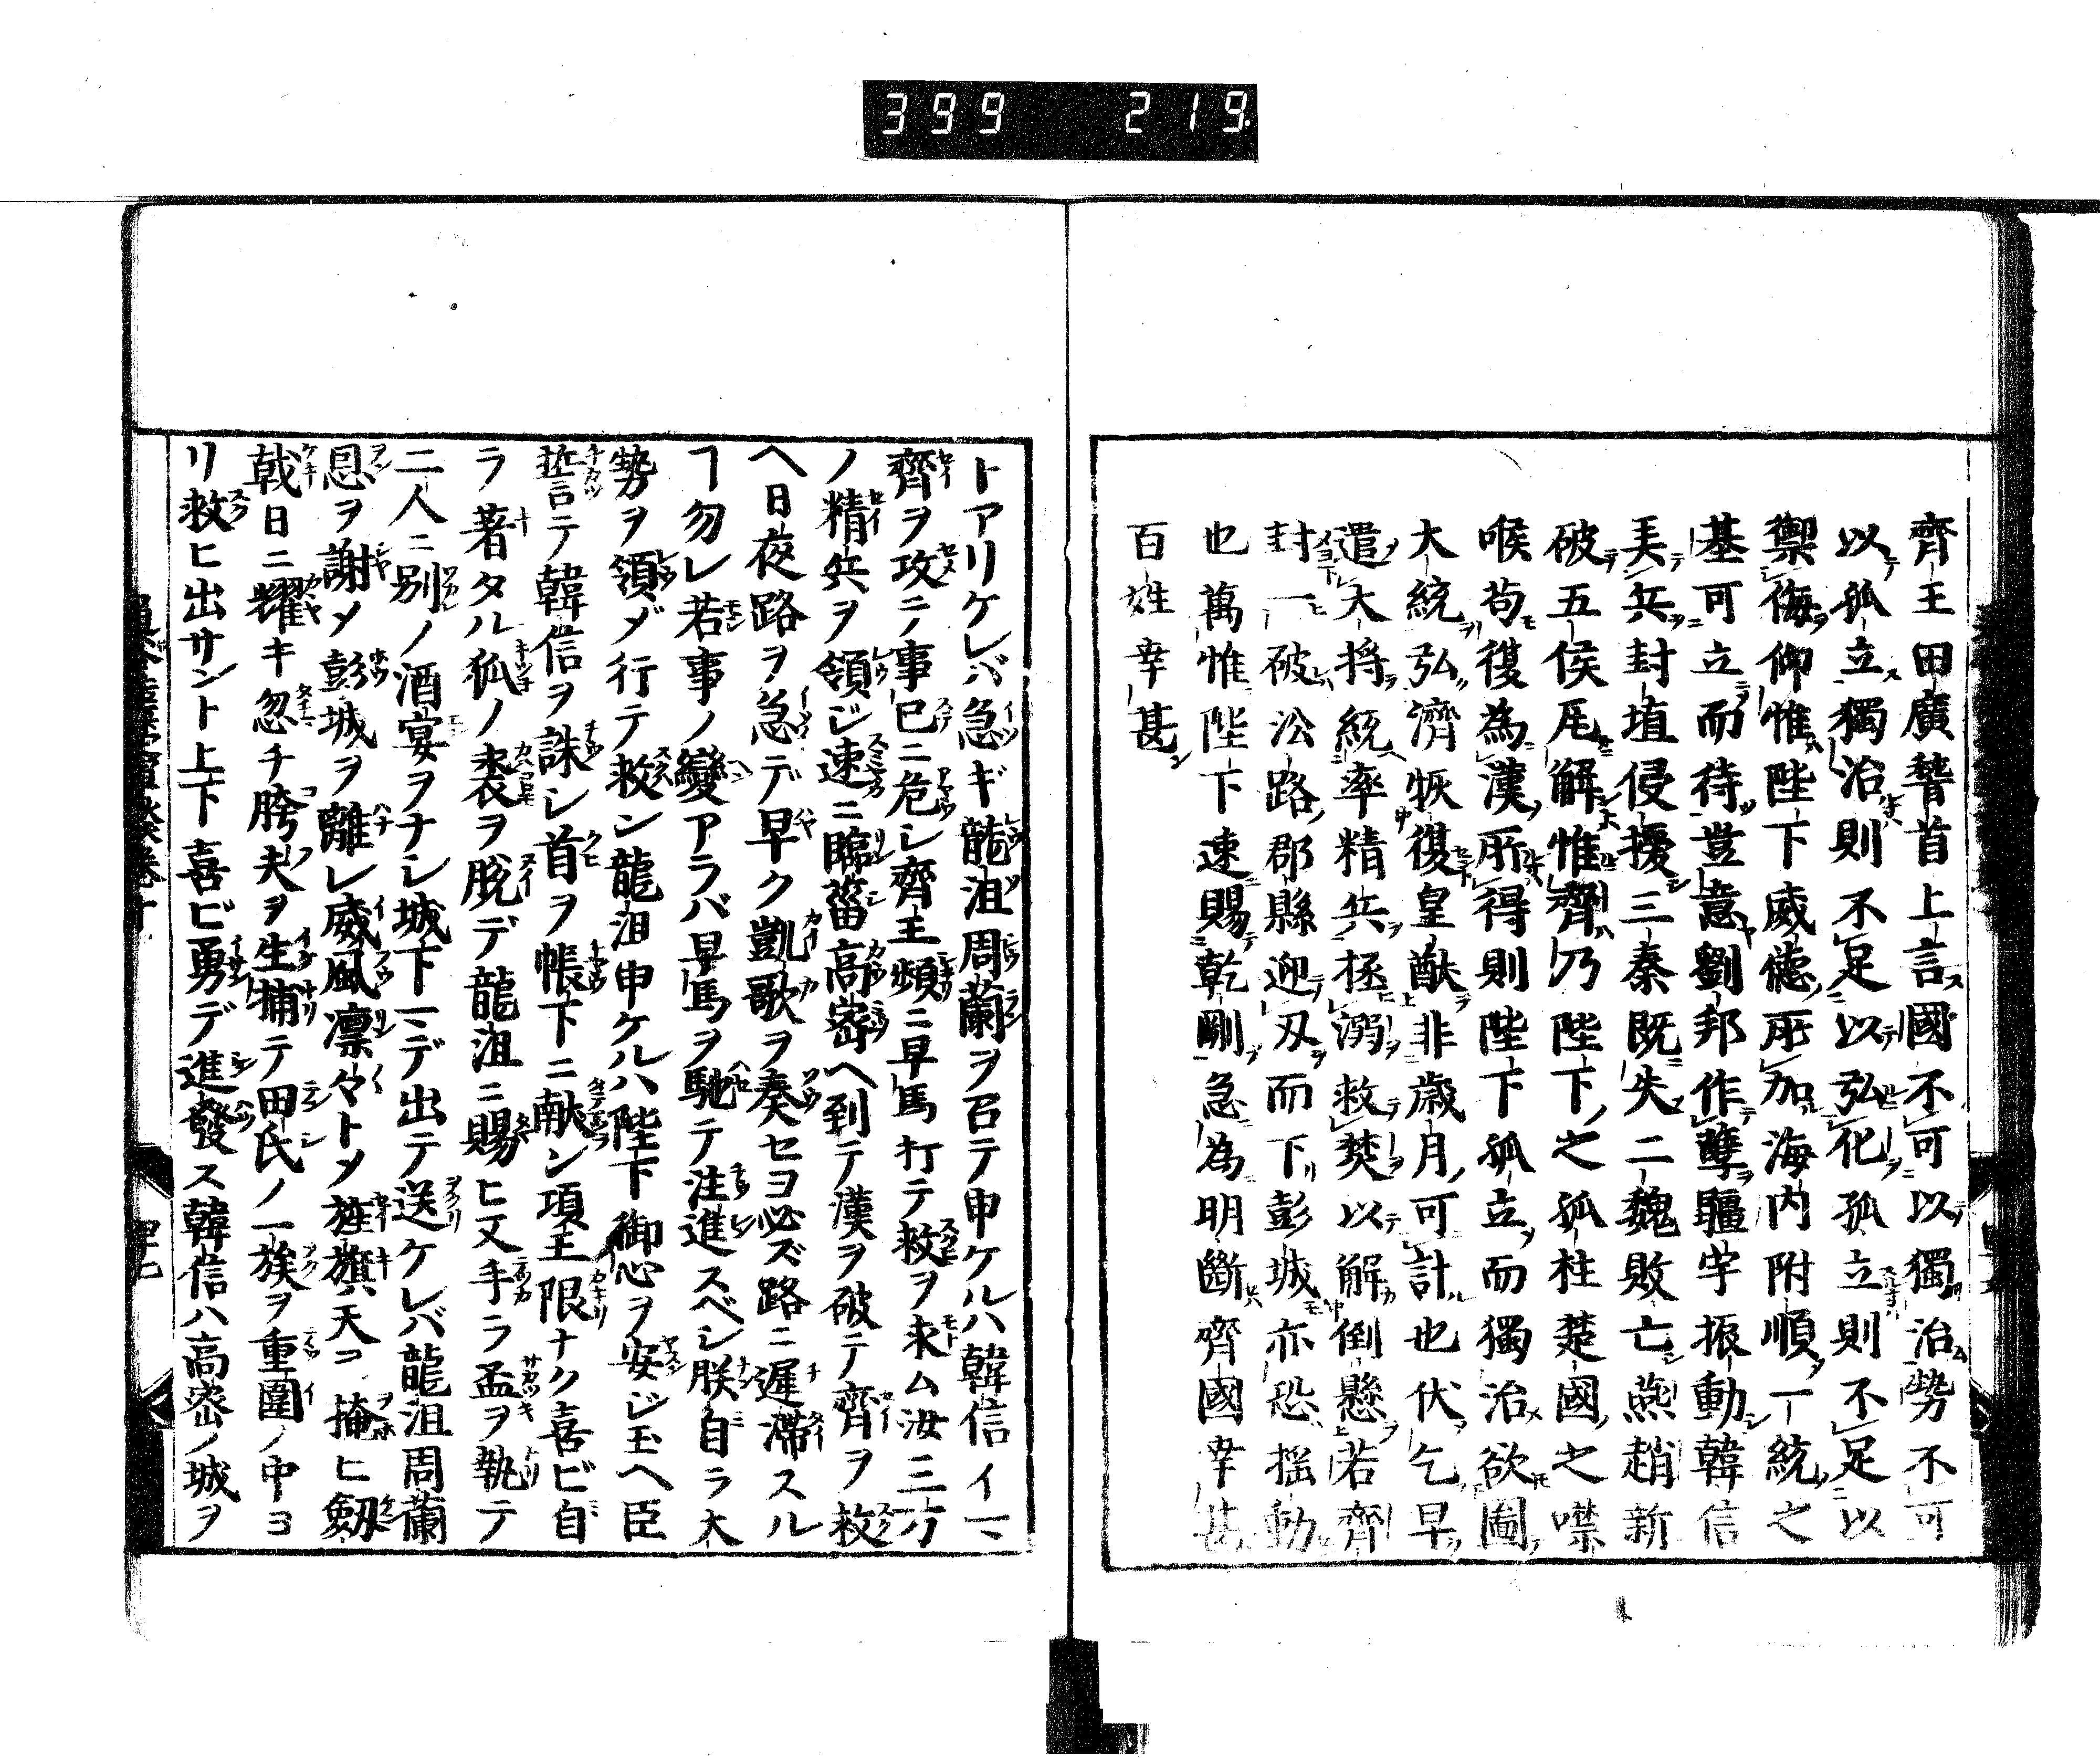 399 219
齊王田廣謦首上言國不可以獨治勢不可
以孤立獨治則不足以弘化孤立則不足以
禦侮仰惟陛下威德所加海内附順一統之
基可立而待豈意劉邦作孽疆宇振動韓信
美兵封埴侵擾三秦既失二魏敗亡燕趙新
破五侯瓦解惟齊乃陛下之孤柱楚國之噤
喉苟復為漢所得則陛下孤立而獨治欲圖
大統弘濟恢復皇猷非歳月可計也伏乞早
遣大將統率精兵拯溺救焚以解倒懸若齊
封一破㳂路郡縣迎刄而下彭城亦恐揺動
也萬惟陛下速賜乾剛急為明斷齊國幸甚
百姓幸甚
トアリケレバ急ギ龍沮周蘭ヲ召テ申ケルハ韓信イマ
齊ヲ攻ニノ事已ニ危レ齊王頻ニ早馬打テ救ヲ求ム汝三万
ノ精兵ヲ領ジ速ニ臨菑高密ヘ到テ漢ヲ破テ齊ヲ救
ヘ日夜路ヲ急デ早ク凱歌ヲ奏セヨ必ズ路ニ遲滯スル
ヿ勿レ若事ノ變アラバ早馬ヲ馳テ注進スベシ朕自ラ大
勢ヲ領〆行テ救ン龍沮申ケルハ陛下御心ヲ安ジ玉ヘ臣
誓テ韓信ヲ誅レ首ヲ帳下ニ献ン項王限ナク喜ビ自
ラ著タル狐ノ裘ヲ脱デ龍沮ニ賜ヒ又手ラ盃ヲ執テ
二人ニ別ノ酒宴ヲナレ城下マデ出テ送ケレバ龍沮周蘭
恩ヲ謝〆彭城ヲ離レ威風凛々ト〆旌旗天ヲ掩ヒ劔
戟日ニ耀キ忽チ胯夫ヲ生捕テ田氏ノ一族ヲ重圍ノ中ヨ
リ救ヒ出サント上下喜ビ勇デ進發ス韓信ハ高密ノ城ヲ